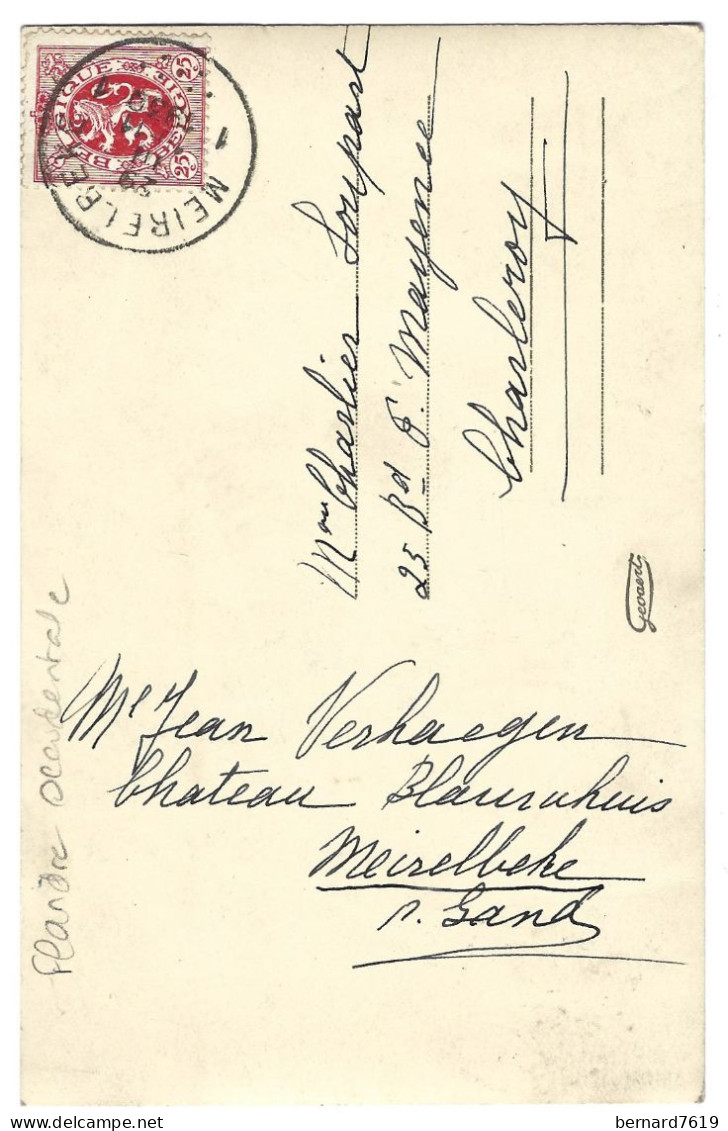 BELGIQUE
25 25
1 MEIRELBEKE
Mme Charlier Loupart
25 Bd P. Mayence
Charleroy
Gevaert
Mr Jean Verhaegen
Chateau Blauwhuis
Meirelbeke
s. Gand
Flandre occidentale
bernard7619